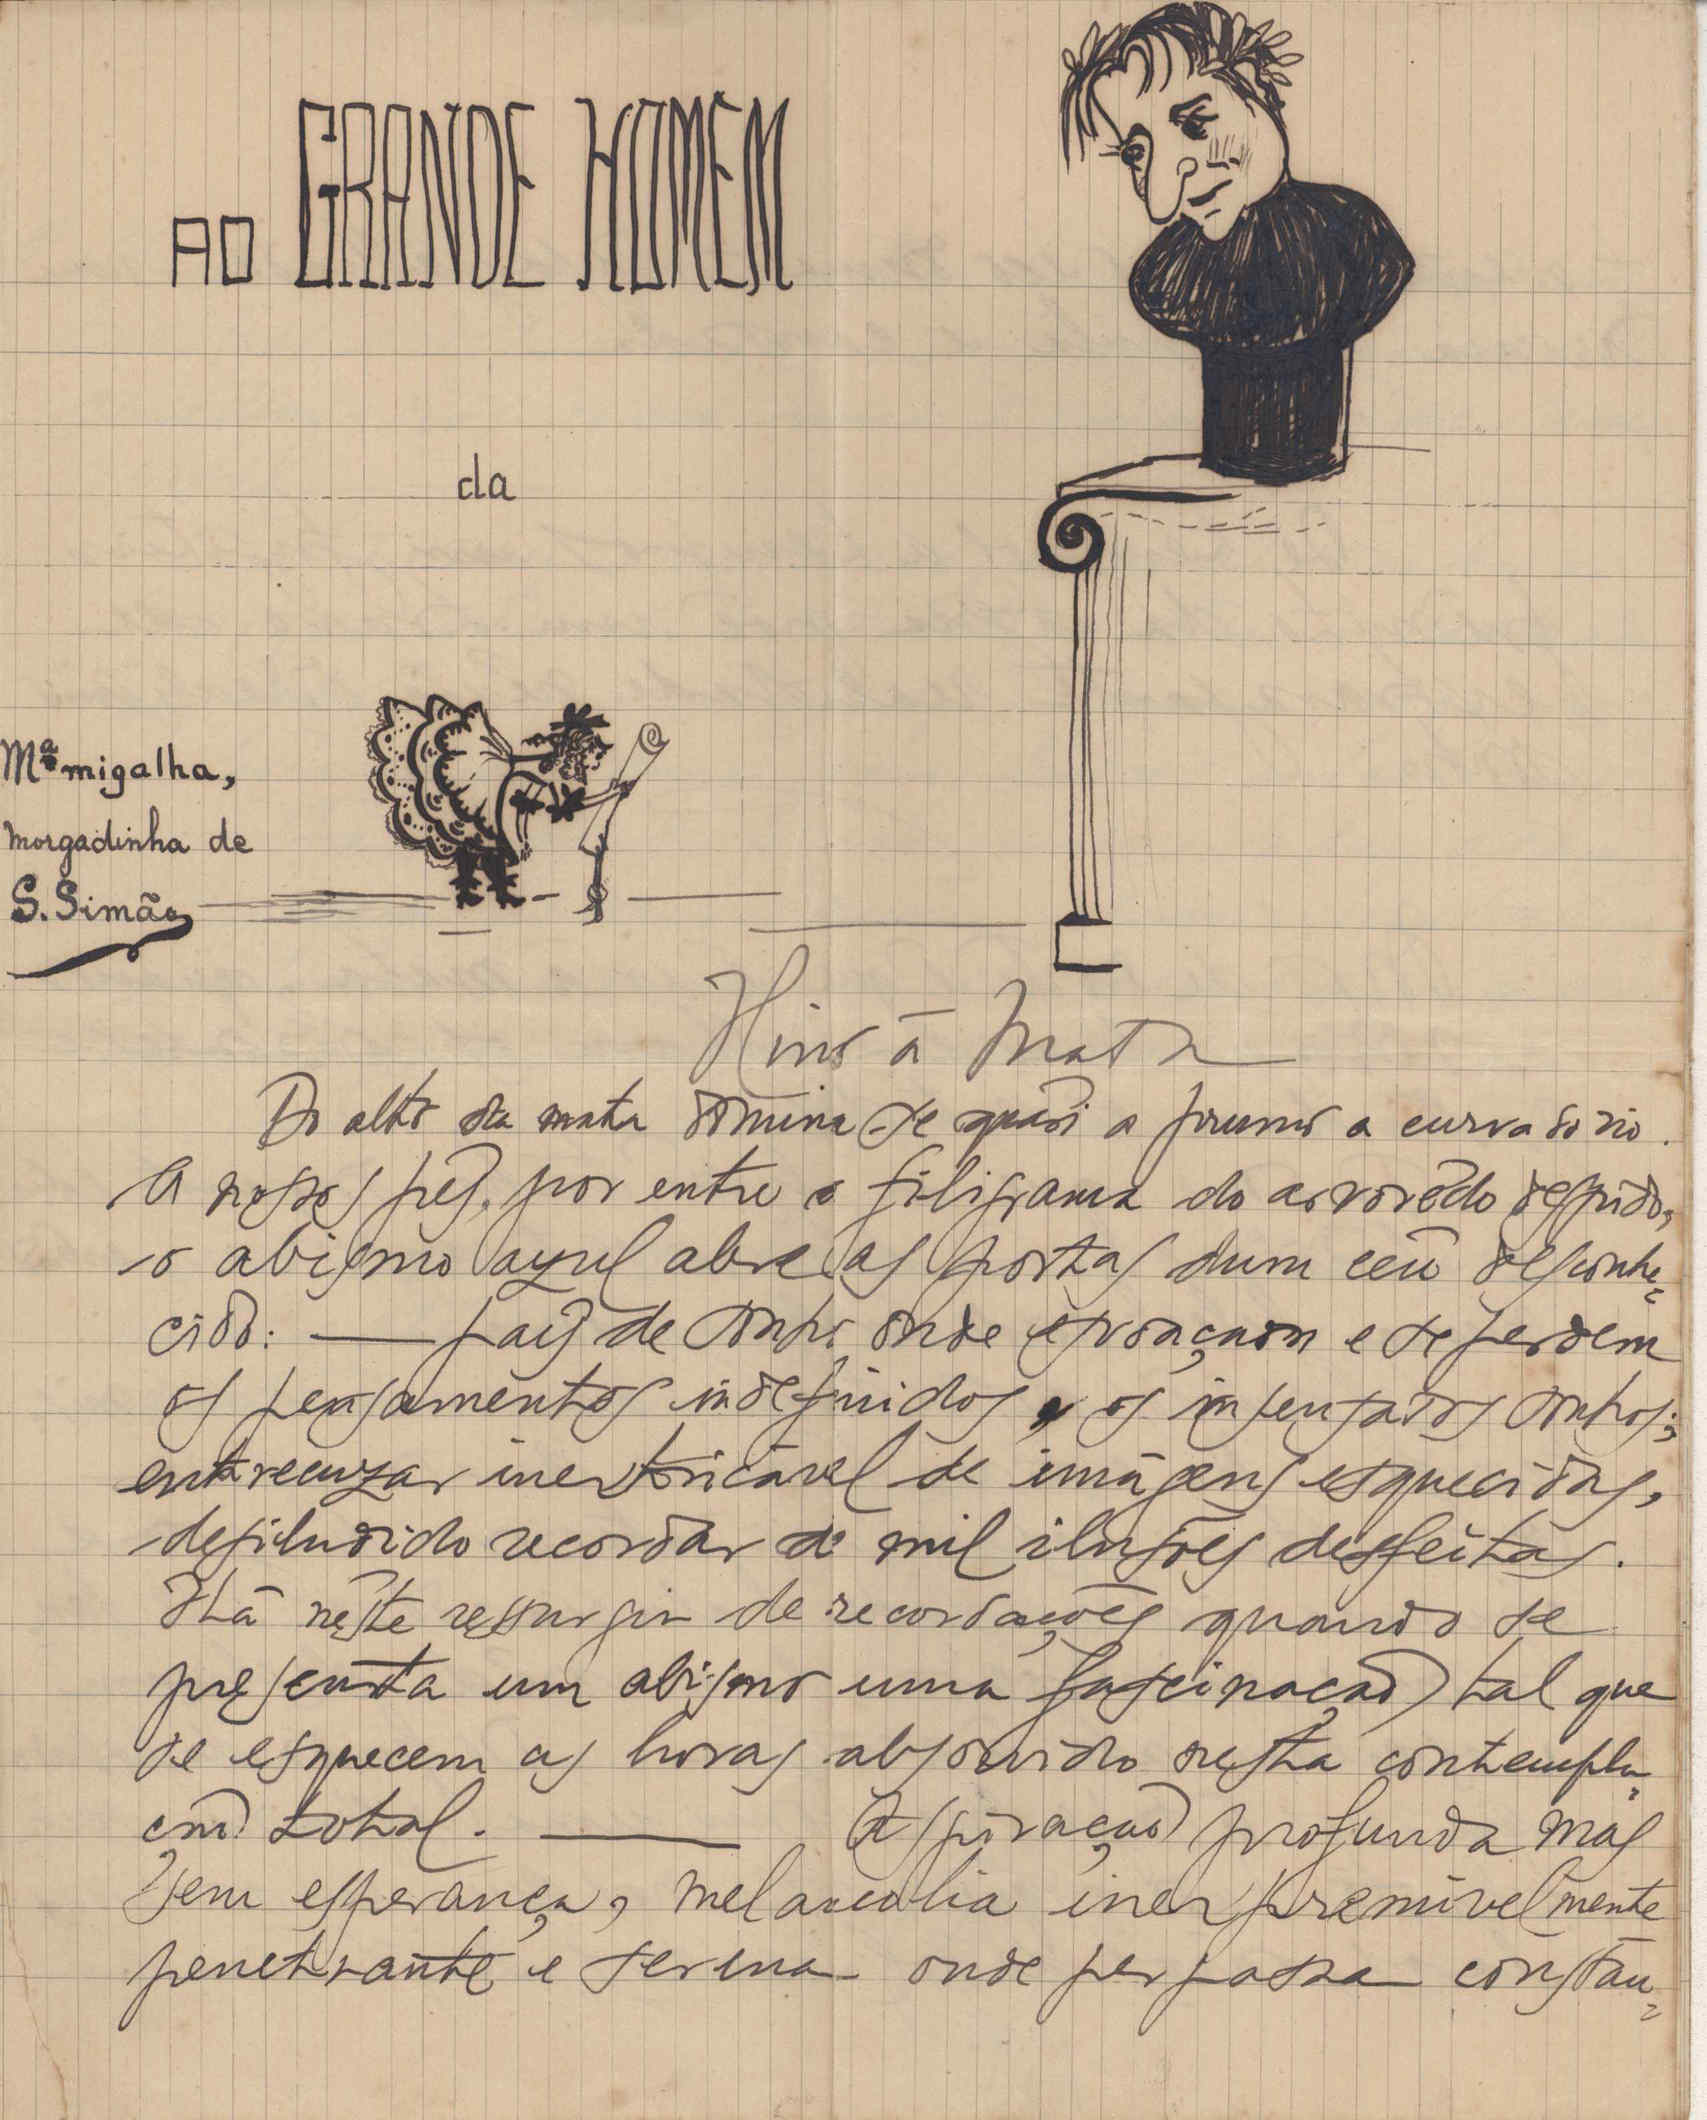 AO GRANDE HOMEM
da
Mª migalha,
morgadinha de
S. Simão
Hino à Mata
Do alto da mata domina-se quási a prumo a curva do rio.
A nossos pés, por entre a filigrana do arvorêdo despido,
o abismo azul abre as portas dum céu desconhe=
cido: — país de sonho onde esvoaçam e se perdem
os pensamentos indefinidos, os insensatos sonhos;
entrecruzar inextricável de imagens esquecidas,
desiludido recordar de mil ilusões desfeitas.
Há nêste ressurgir de recordações quando se
presenta um abismo uma fascinação tal que
se esquecem as horas absorvido nesta contempla=
ção total. — Aspiração profunda mas
sem esperança, melancolia inexprimivelmente
penetrante e serena onde perpassa constan=